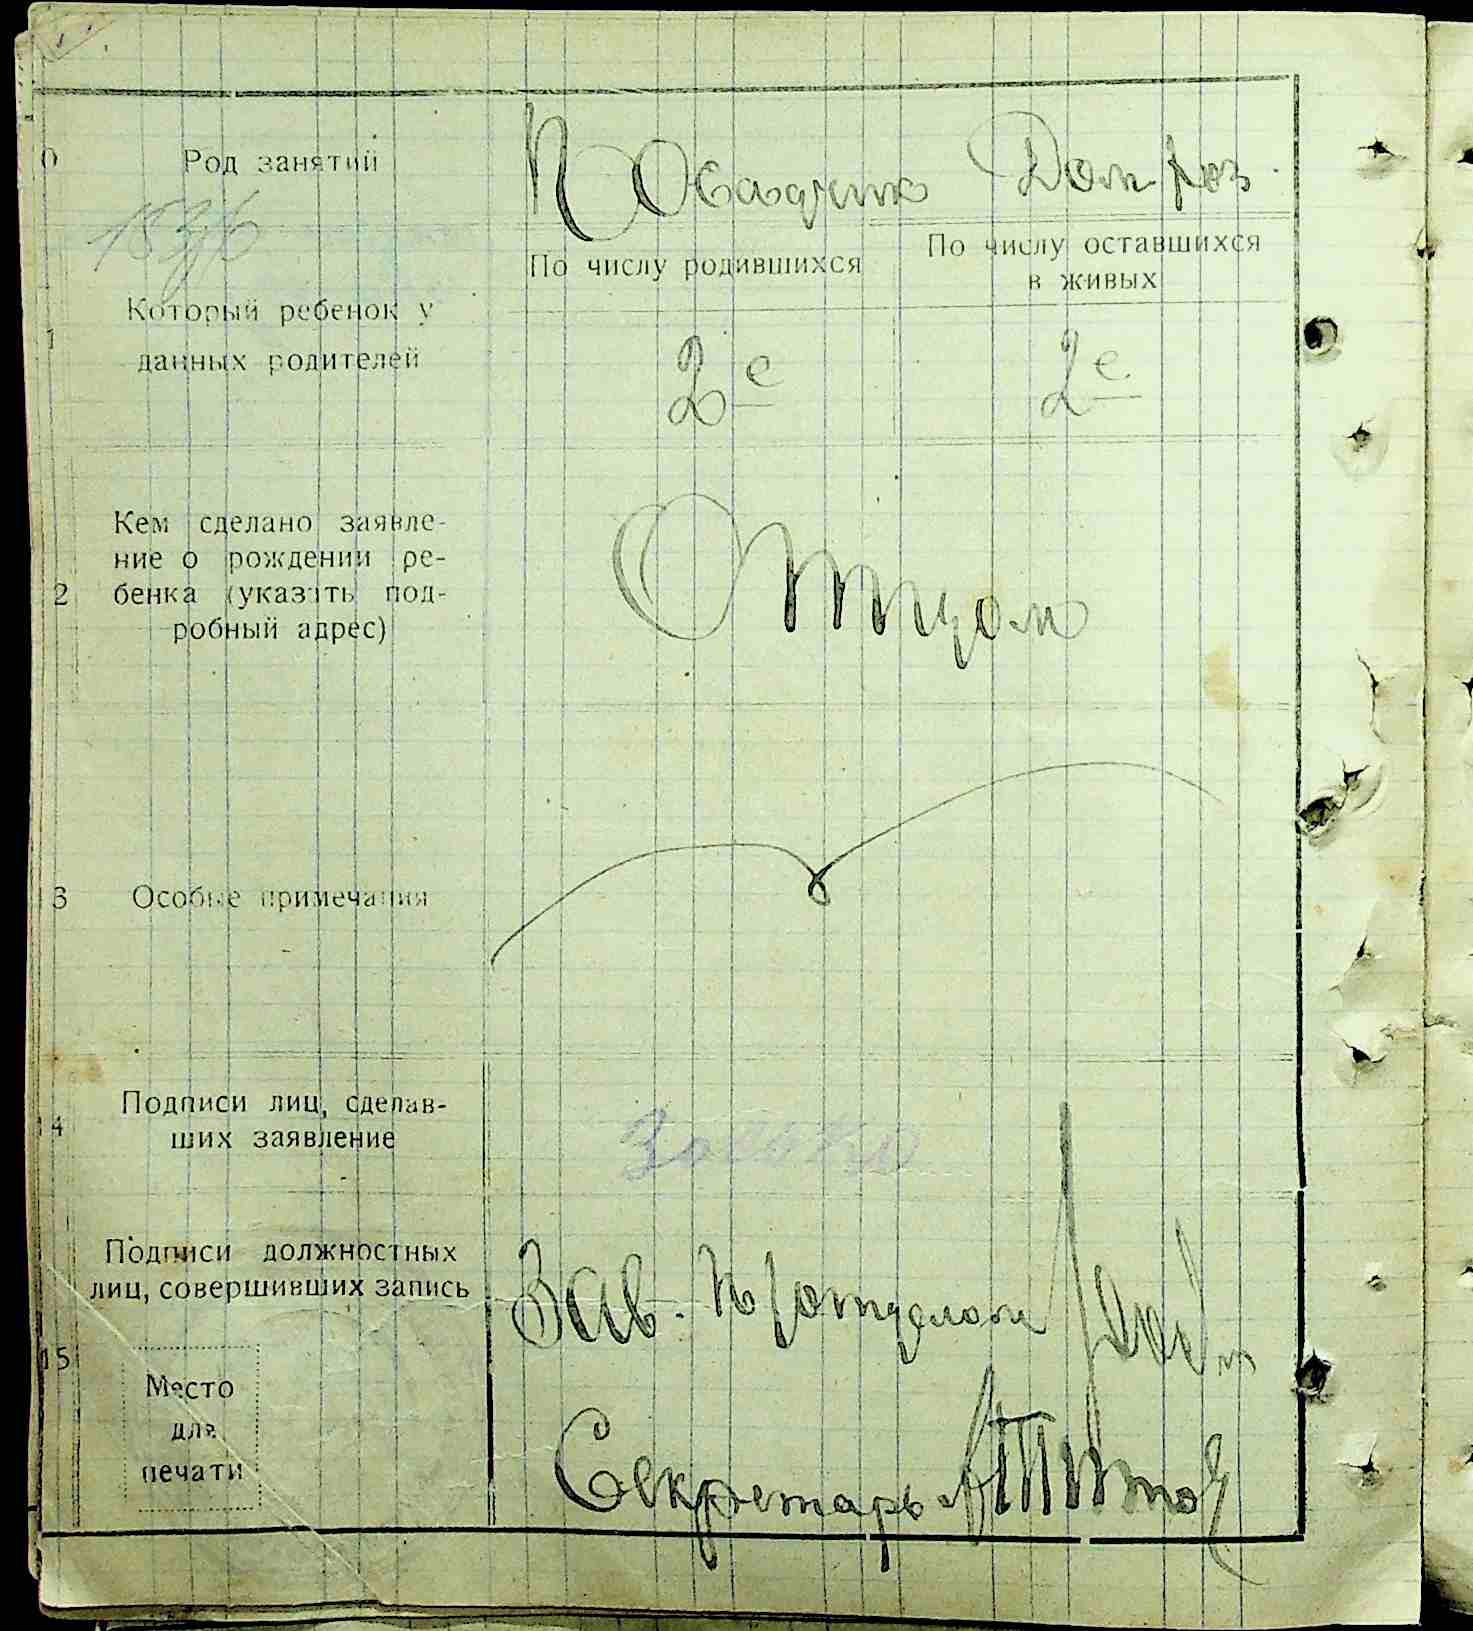 0 Род занятий Посадчик Дом. хоз.
По числу родившихся По числу оставшихся
в живых
1 Который ребенок у
данных родителей 2е 2е
Кем сделано заявле-
ние о рождении ре-
2 бенка (указать под-
робный адрес) Отцом
3 Особые примечания
14 Подписи лиц, сделав-
ших заявление
Подписи должностных
лиц, совершивших запись Зав.
15
Место
для
печати
Секретарь